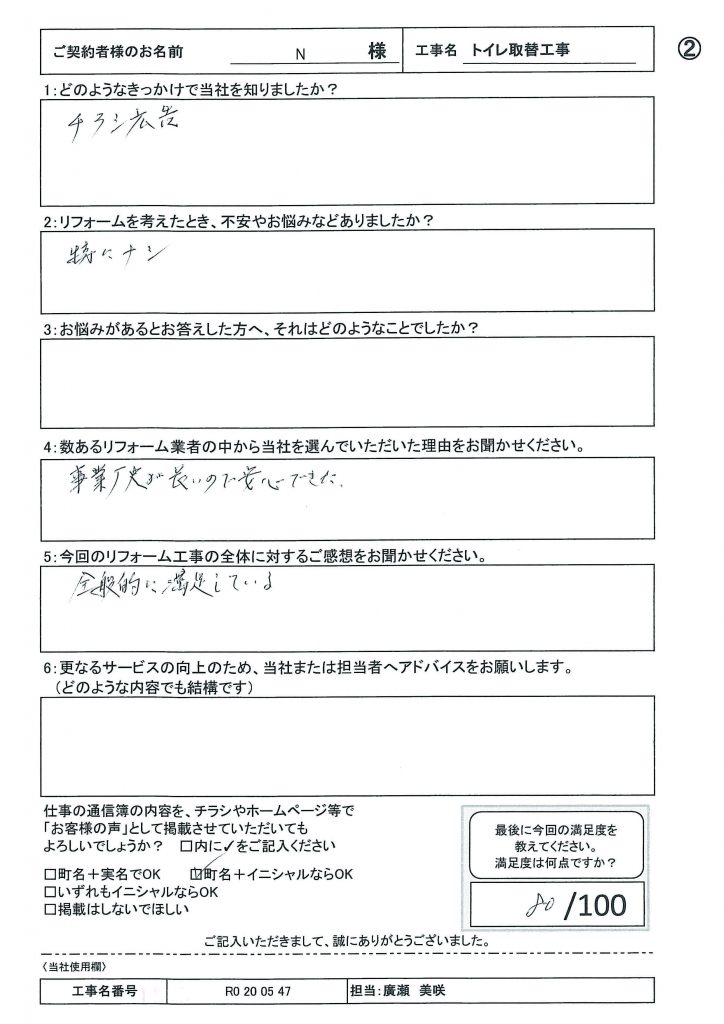 ご契約者様のお名前 N 様 工事名 トイレ取替工事 ②
1:どのようなきっかけで当社を知りましたか?
チラシ広告
2:リフォームを考えたとき、不安やお悩みなどありましたか?
特にナシ
3:お悩みがあるとお答えした方へ、それはどのようなことでしたか?
4:数あるリフォーム業者の中から当社を選んでいただいた理由をお聞かせください。
事業歴史が長いので安心できた.
5:今回のリフォーム工事の全体に対するご感想をお聞かせください。
全般的に満足している
6:更なるサービスの向上のため、当社または担当者へアドバイスをお願いします。
(どのような内容でも結構です)
仕事の通信簿の内容を、チラシやホームページ等で
「お客様の声」として掲載させていただいても
よろしいでしょうか? □内に✓をご記入ください
□町名+実名でOK ☑町名+イニシャルならOK
□いずれもイニシャルならOK
□掲載はしないでほしい
最後に今回の満足度を
教えてください。
満足度は何点ですか?
80/100
ご記入いただきまして、誠にありがとうございました。
〈当社使用欄〉
工事名番号 R0 20 05 47 担当:廣瀬 美咲